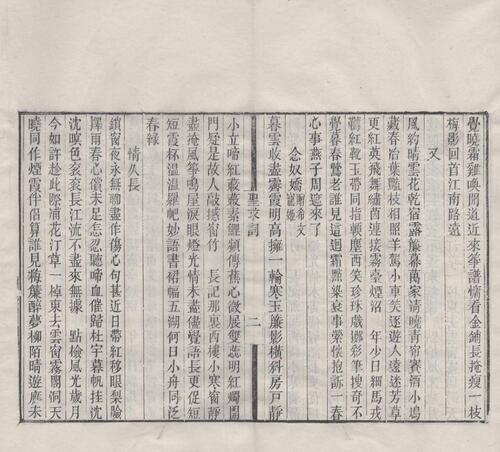 覺曉霜雞喚開道近來箏譜慵看金鋪長掩瘦一枝
梅影回首江南路遠
又
風約晴雲花乾宿露簾幕萬家清曉青帘賽酒小塢
藏春冶葉豔枝相照羊駕小車笑逐遊人遠迷芳草
更紅英飛舞繡茵連接霧臺煙沼　年少日細馬戎
韂紅靴玉帶同指頓塵西笑珍珠戲擲彩筆搜奇不
覺暮春鶯老誰見這迴霜點鬢衰事縈懷抱訴一春
心事燕子周遮來了
念奴嬌　贈希文寵姬
暮雲收盡霽霞明高擁一輪寒玉簾影橫斜房戶靜
聖求詞　二
小立啼紅蔌蔌素鯉頻傳蕉心微展雙蕊明紅燭開
門疑是故人敲撼窗竹　長記那裏西樓小寒窗靜
盡掩風箏鳴屋淚眼燈光情未盡儘覺語長更促短
短霞杯溫溫羅帕妙語書裙幅五湖何日小舟同泛
春綠
情久長
鎖窗夜永無聊盡作傷心句甚近日帶紅移眼梨臉
擇雨春心償未足怎忍聽啼血催歸杜宇暮帆挂沈
沈暝色袞袞長江流不盡來無據　點檢風光歲月
今如許趁此際浦花汀草一棹東去雲窗霧閣洞天
曉同作煙霞伴侶算誰見梅簾醉夢柳陌晴遊應未